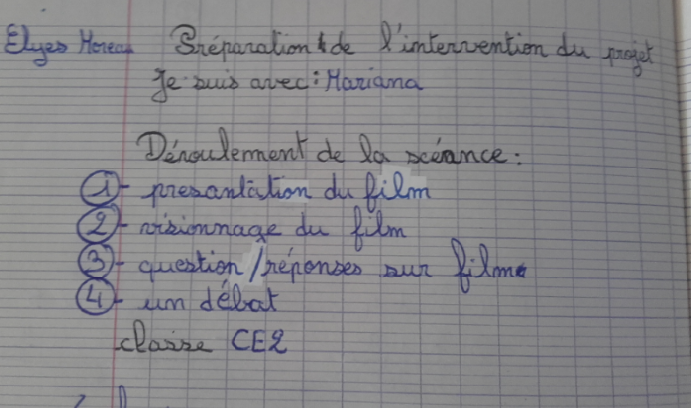 Elyes Moreau Préparation de l'intervention du projet
Je suis avec : Mariana
Déroulement de la scéance :
1- presantation du film
2- visionnage du film
3- question/réponses sur film
4- un débat
classe CE2